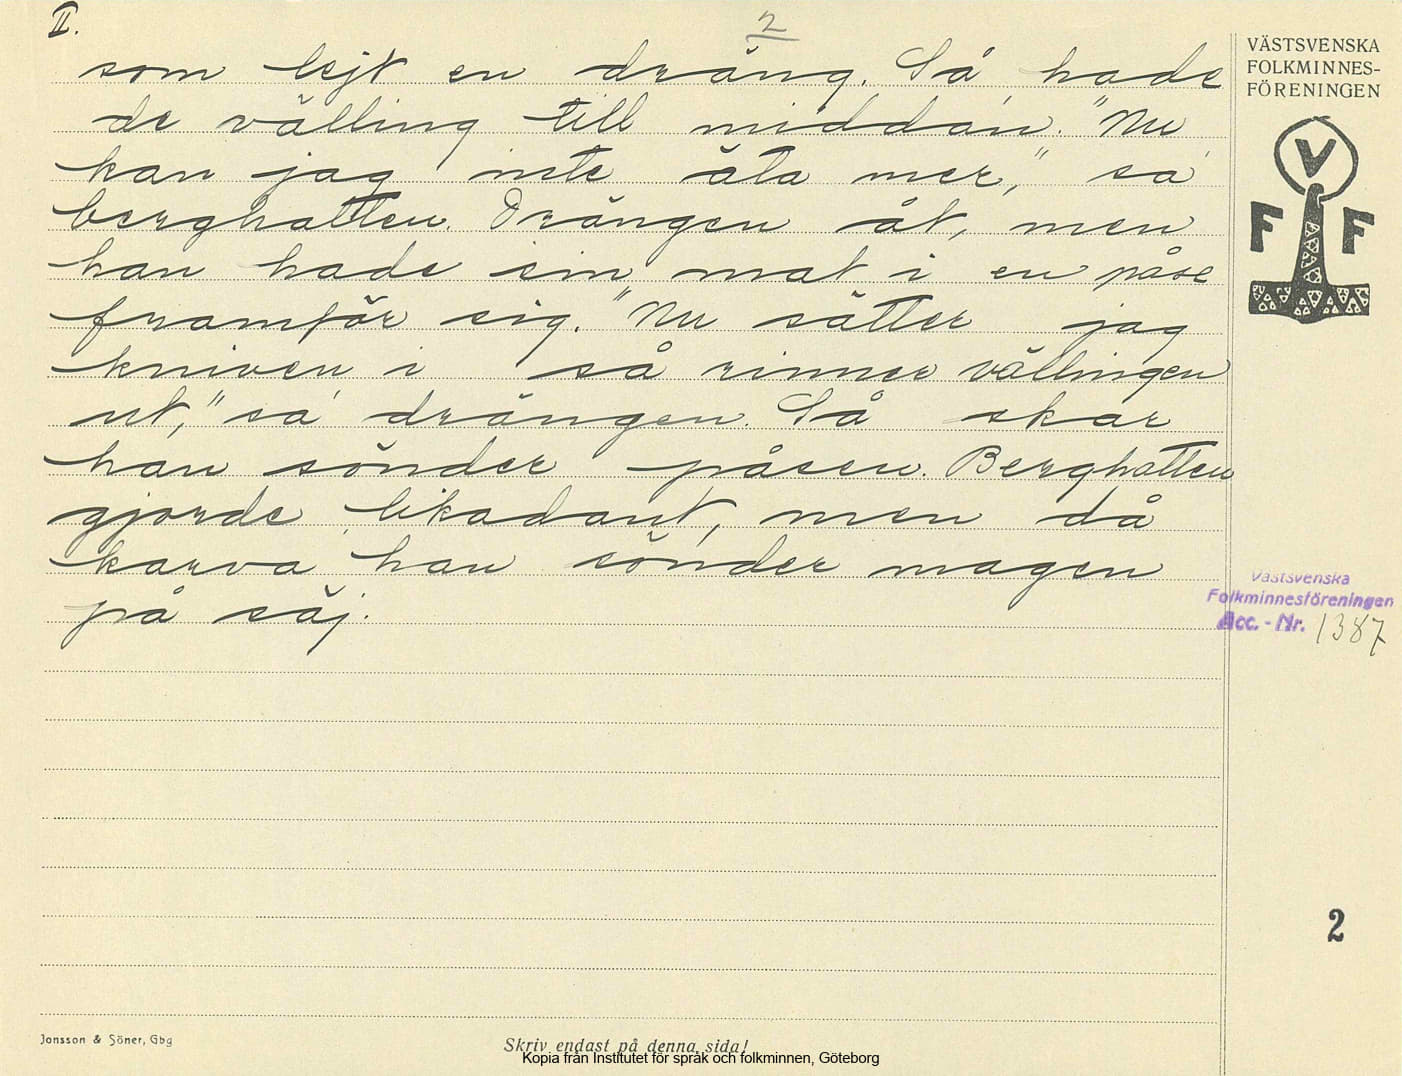 II.
2
som lejt en dräng. Så hade
de välling till middan. "Nu
kan jag inte äta mer," sa
berghatten. Drängen åt, men
han hade sin mat i en påse
framför sig. "Nu sätter jag
kniven i så rinner vällingen
ut," sa drängen. Så skar
han sönder påsen. Berghatten
gjorde likadant, men då
karva han sönder magen
på säj.
VÄSTSVENSKA
FOLKMINNES-
FÖRENINGEN
V
F F
Västsvenska
Folkminnesföreningen
Acc. - Nr. 1387
2
Jonsson & Söner, Gbg
Skriv endast på denna sida!
Kopia från Institutet för språk och folkminnen, Göteborg